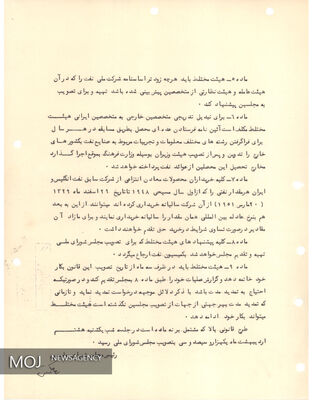 ماده ۵ـ هیئت مختلط باید هرچه زودتر اساسنامه شرکت ملی نفت را که در آن
هیئت عامله و هیئت نظارتی از متخصصین پیش بینی شده باشد تهیه و برای تصویب
به مجلسین پیشنهاد کند .
ماده ۶ـ برای تبدیل تدریجی متخصصین خارجی به متخصصین ایرانی هیئت
مختلط مکلف است آئین نامه فرستادن عده ای محصل بطریق مسابقه در هر سال
برای فراگرفتن رشته های مختلف معلومات و تجربیات مربوط به صنایع نفت بکشورهای
خارج را تدوین و پس از تصویب هیئت وزیران بوسیله وزارت فرهنگ بموقع اجرا گذارد
مخارج تحصیل این محصلین از عواید نفت پرداخته خواهد شد .
ماده ۷ـ کلیه خریداران محصولات معادن انتزاعی از شرکت سابق نفت انگلیس و
ایران هر مقدار نفتی را که از اول سال مسیحی ۱۹۴۸ تا تاریخ ۲۹ اسفند ماه ۱۳۲۹
(۲۰ مارس ۱۹۵۱) از آن شرکت سالیانه خریداری کرده اند میتوانند از این به بعد
هم بنرخ عادله بین المللی همان مقدار را سالیانه خریداری نمایند و برای مازاد آن
مقادیر در صورت تساوی شرایط در خرید حق تقدم خواهند داشت .
ماده ۸ـ کلیه پیشنهادهای هیئت مختلط که برای تصویب مجلس شورای ملی
تهیه و تقدیم مجلس خواهد شد بکمیسیون نفت ارجاع میگردد .
ماده ۹ـ هیئت مختلط باید در ظرف سه ماه از تاریخ تصویب این قانون بکار
خود خاتمه دهد و گزارش عملیات خود را طبق ماده ۸ بمجلس تقدیم کند و در صورتیکه
احتیاج به تمدید مدت باشد با ذکر دلائل موجهه درخواست تمدید نماید و تا زمانی
که تمدید مدت بهر جهتی از جهات از تصویب مجلسین نگذشته است هیئت مختلط
میتواند بکار خود ادامه دهد .
طرح قانونی بالا که مشتمل بر نه ماده است در جلسه شب یکشنبه هشتم
اردیبهشت ماه یکهزار و سیصد و سی بتصویب مجلس شورای ملی رسید .
رئیس
MOJ NEWSAGENCY